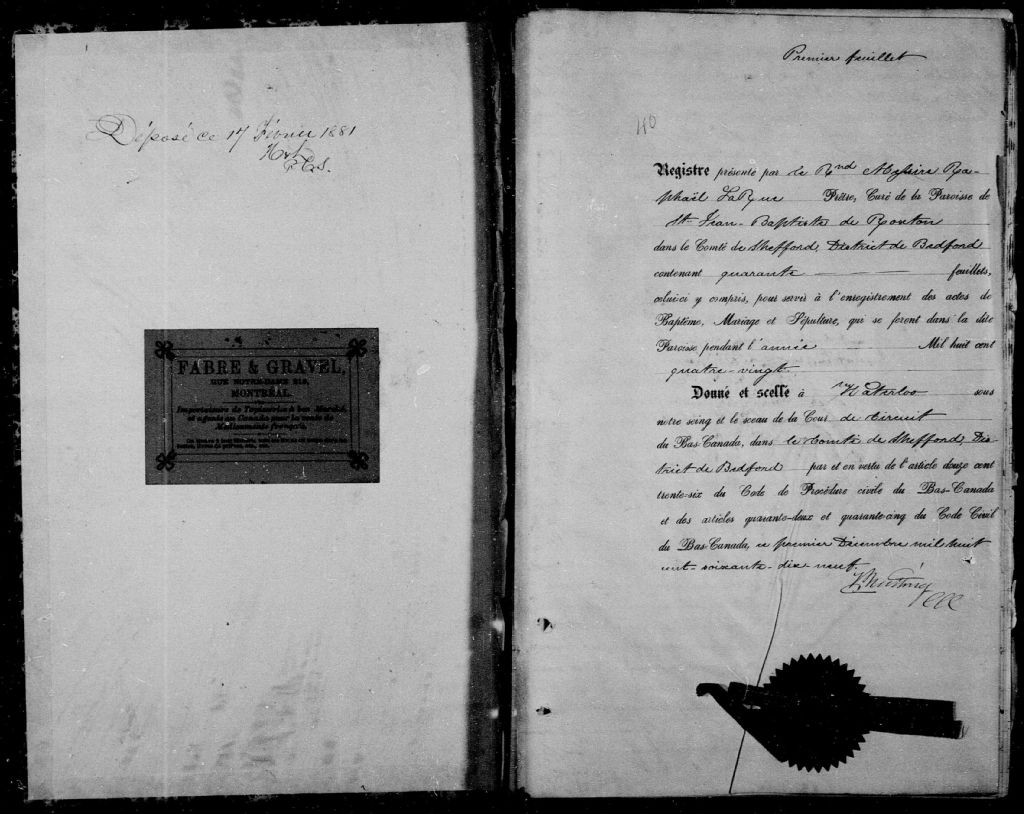 Déposé ce 17 Février 1881
FABRE & GRAVEL,
RUE NOTRE-DAME 219,
MONTREAL.
Importateurs de Tapisseries à bon Marché,
et agents au Canada pour la vente de
Médicaments français.
Premier feuillet
40
Registre présenté par le Rnd Messire Ra-
phaël LaRue Prêtre, Curé de la Paroisse de
St Jean-Baptiste de Roxton
dans le Comté de Shefford, District de Bedford
contenant quarante feuillets,
celui-ci y compris, pour servir à l'enregistrement des actes de
Baptême, Mariage et Sépulture, qui se feront dans la dite
Paroisse pendant l'année Mil huit cent
quatre-vingt
Donné et scellé à Waterloo sous
notre seing et le sceau de la Cour de Circuit
du Bas-Canada, dans le Comté de Shefford, Dis-
trict de Bedford par et en vertu de l'article douze cent
trente-six du Code de Procédure civile du Bas-Canada
et des articles quarante-deux et quarante-cinq du Code Civil
du Bas-Canada, ce premier Décembre mil huit
cent-soixante-dix-neuf.
CCC